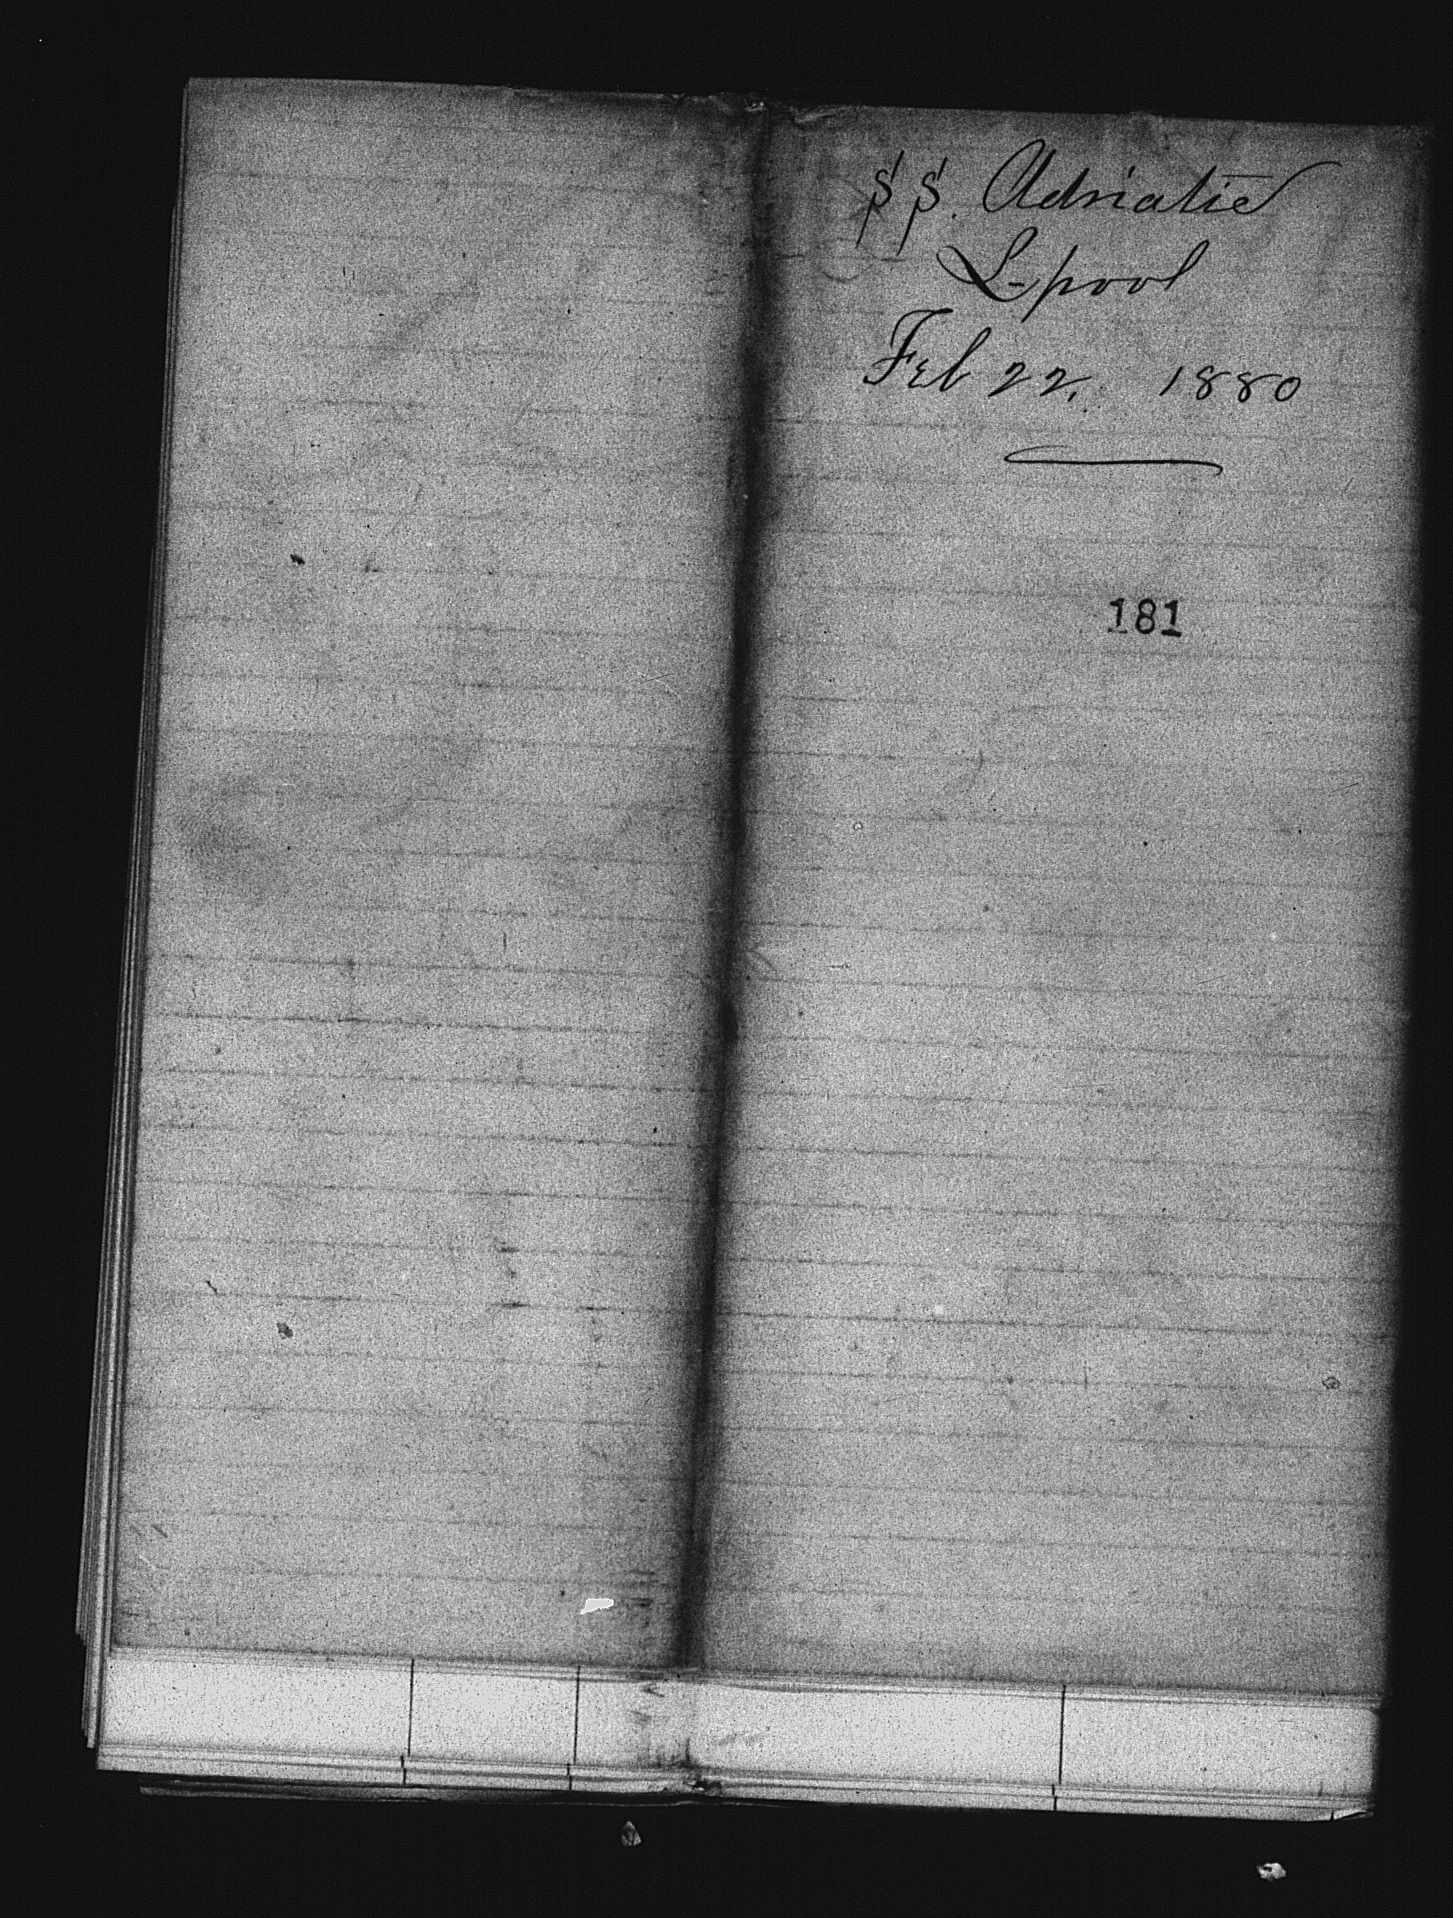 SS. Adriatic
L-pool
Feb 22, 1880
181